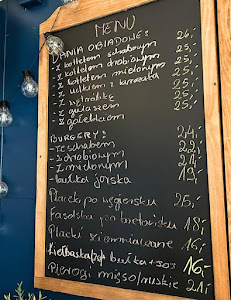 MENU
DANIA OBIADOWE:
- z kotletem schabowym 26,-
- z kotletem drobiowym 25,-
- z kotletem mielonym 25,-
- z udkiem z kurczaka 25,-
- z wątróbką 25,-
- z gulaszem 25,-
- z gołąbkiem
BURGERY:
- ze schabem 24,-
- z drobiowym 22,-
- z mielonym 21,-
- bułka jarska 19,-
Placki po węgiersku 25,-
Fasolka po bretońsku 18,-
Placki ziemniaczane 16,-
Kiełbaska bułka + sos 16,-
Pierogi mięso/ruskie 21,-